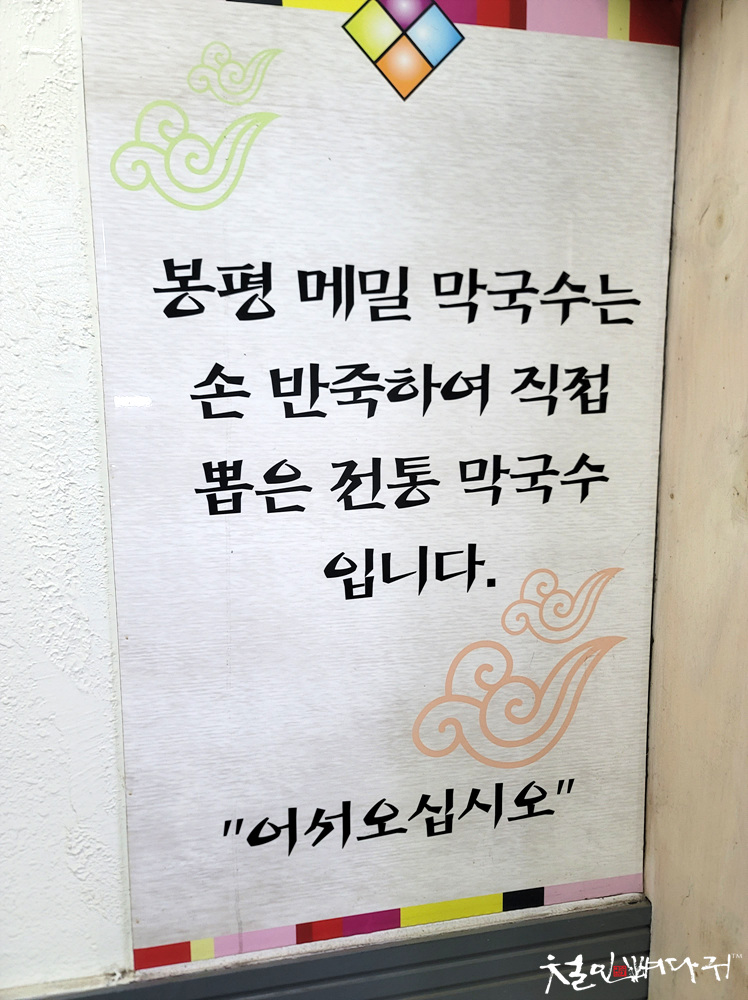 봉평 메밀 막국수는
손 반죽하여 직접
뽑은 전통 막국수
입니다.
"어서오십시오"
철인뼈다귀™